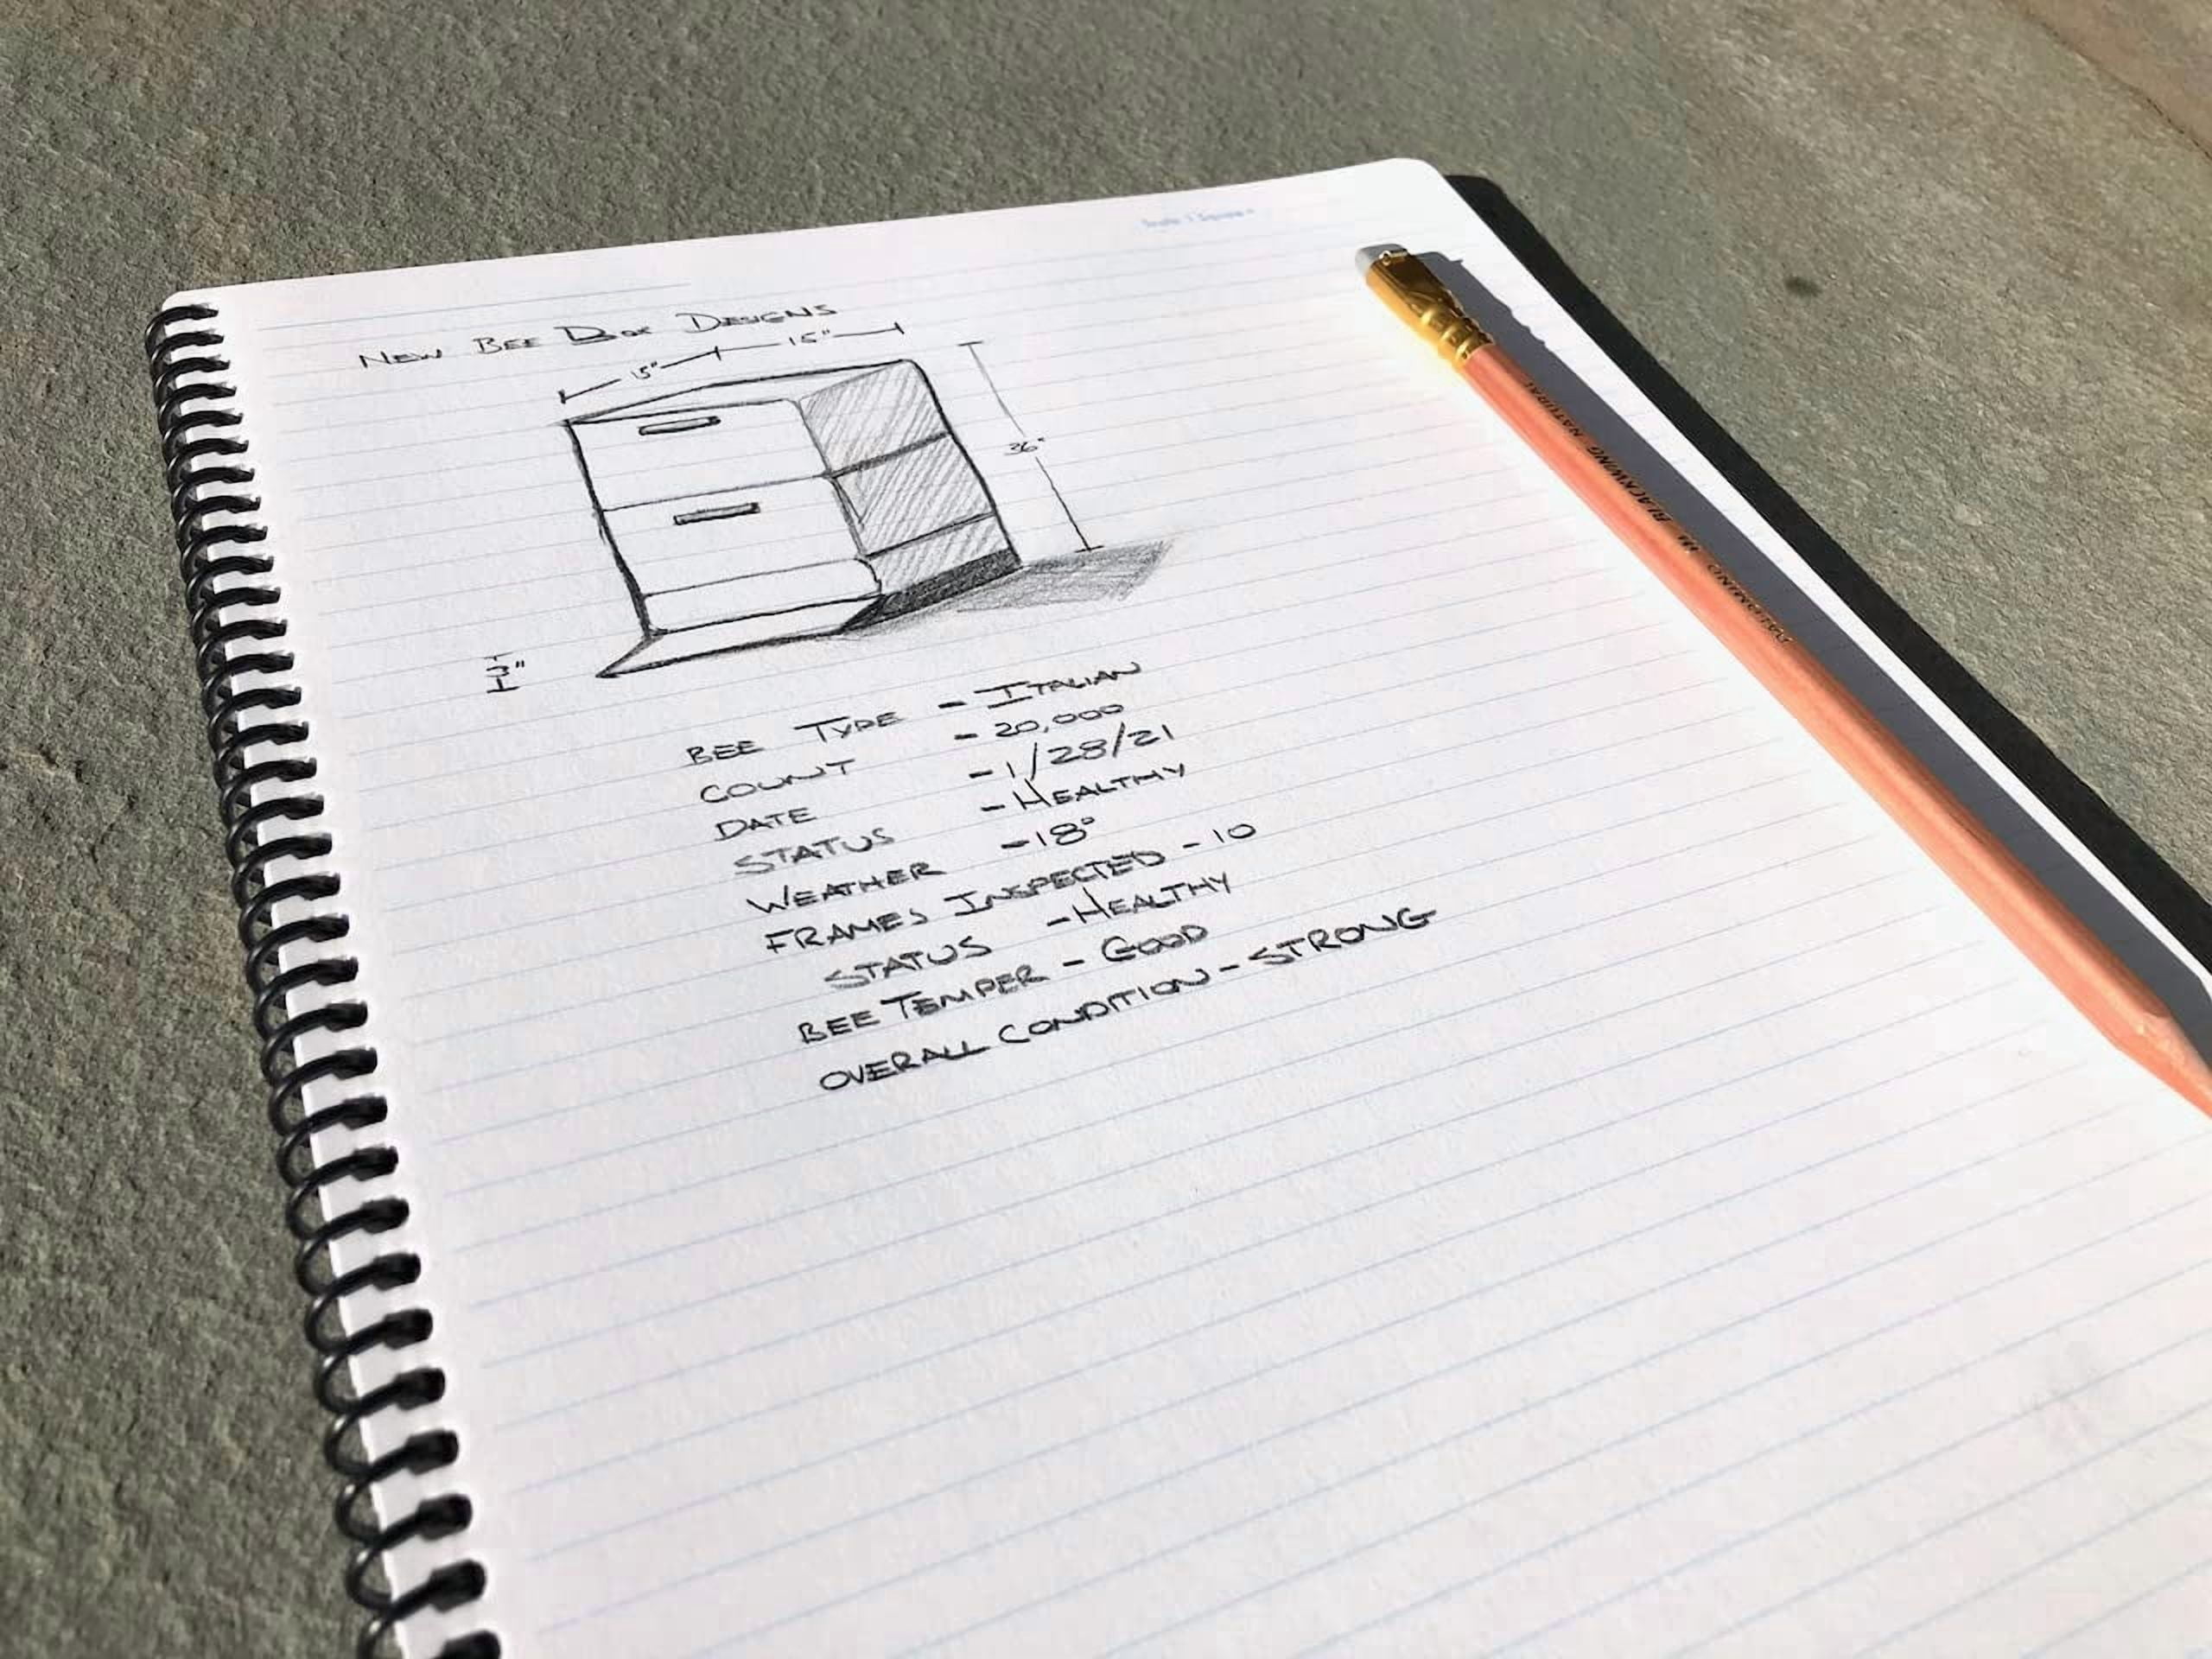 NEW BEE BOX DESIGNS
15" 15"
36"
3"
BEE TYPE - ITALIAN
COUNT - 20,000
DATE - 1/28/21
STATUS - HEALTHY
WEATHER - 18°
FRAMES INSPECTED - 10
STATUS - HEALTHY
BEE TEMPER - GOOD
OVERALL CONDITION - STRONG
PALOMINO BLACKWING NATURAL